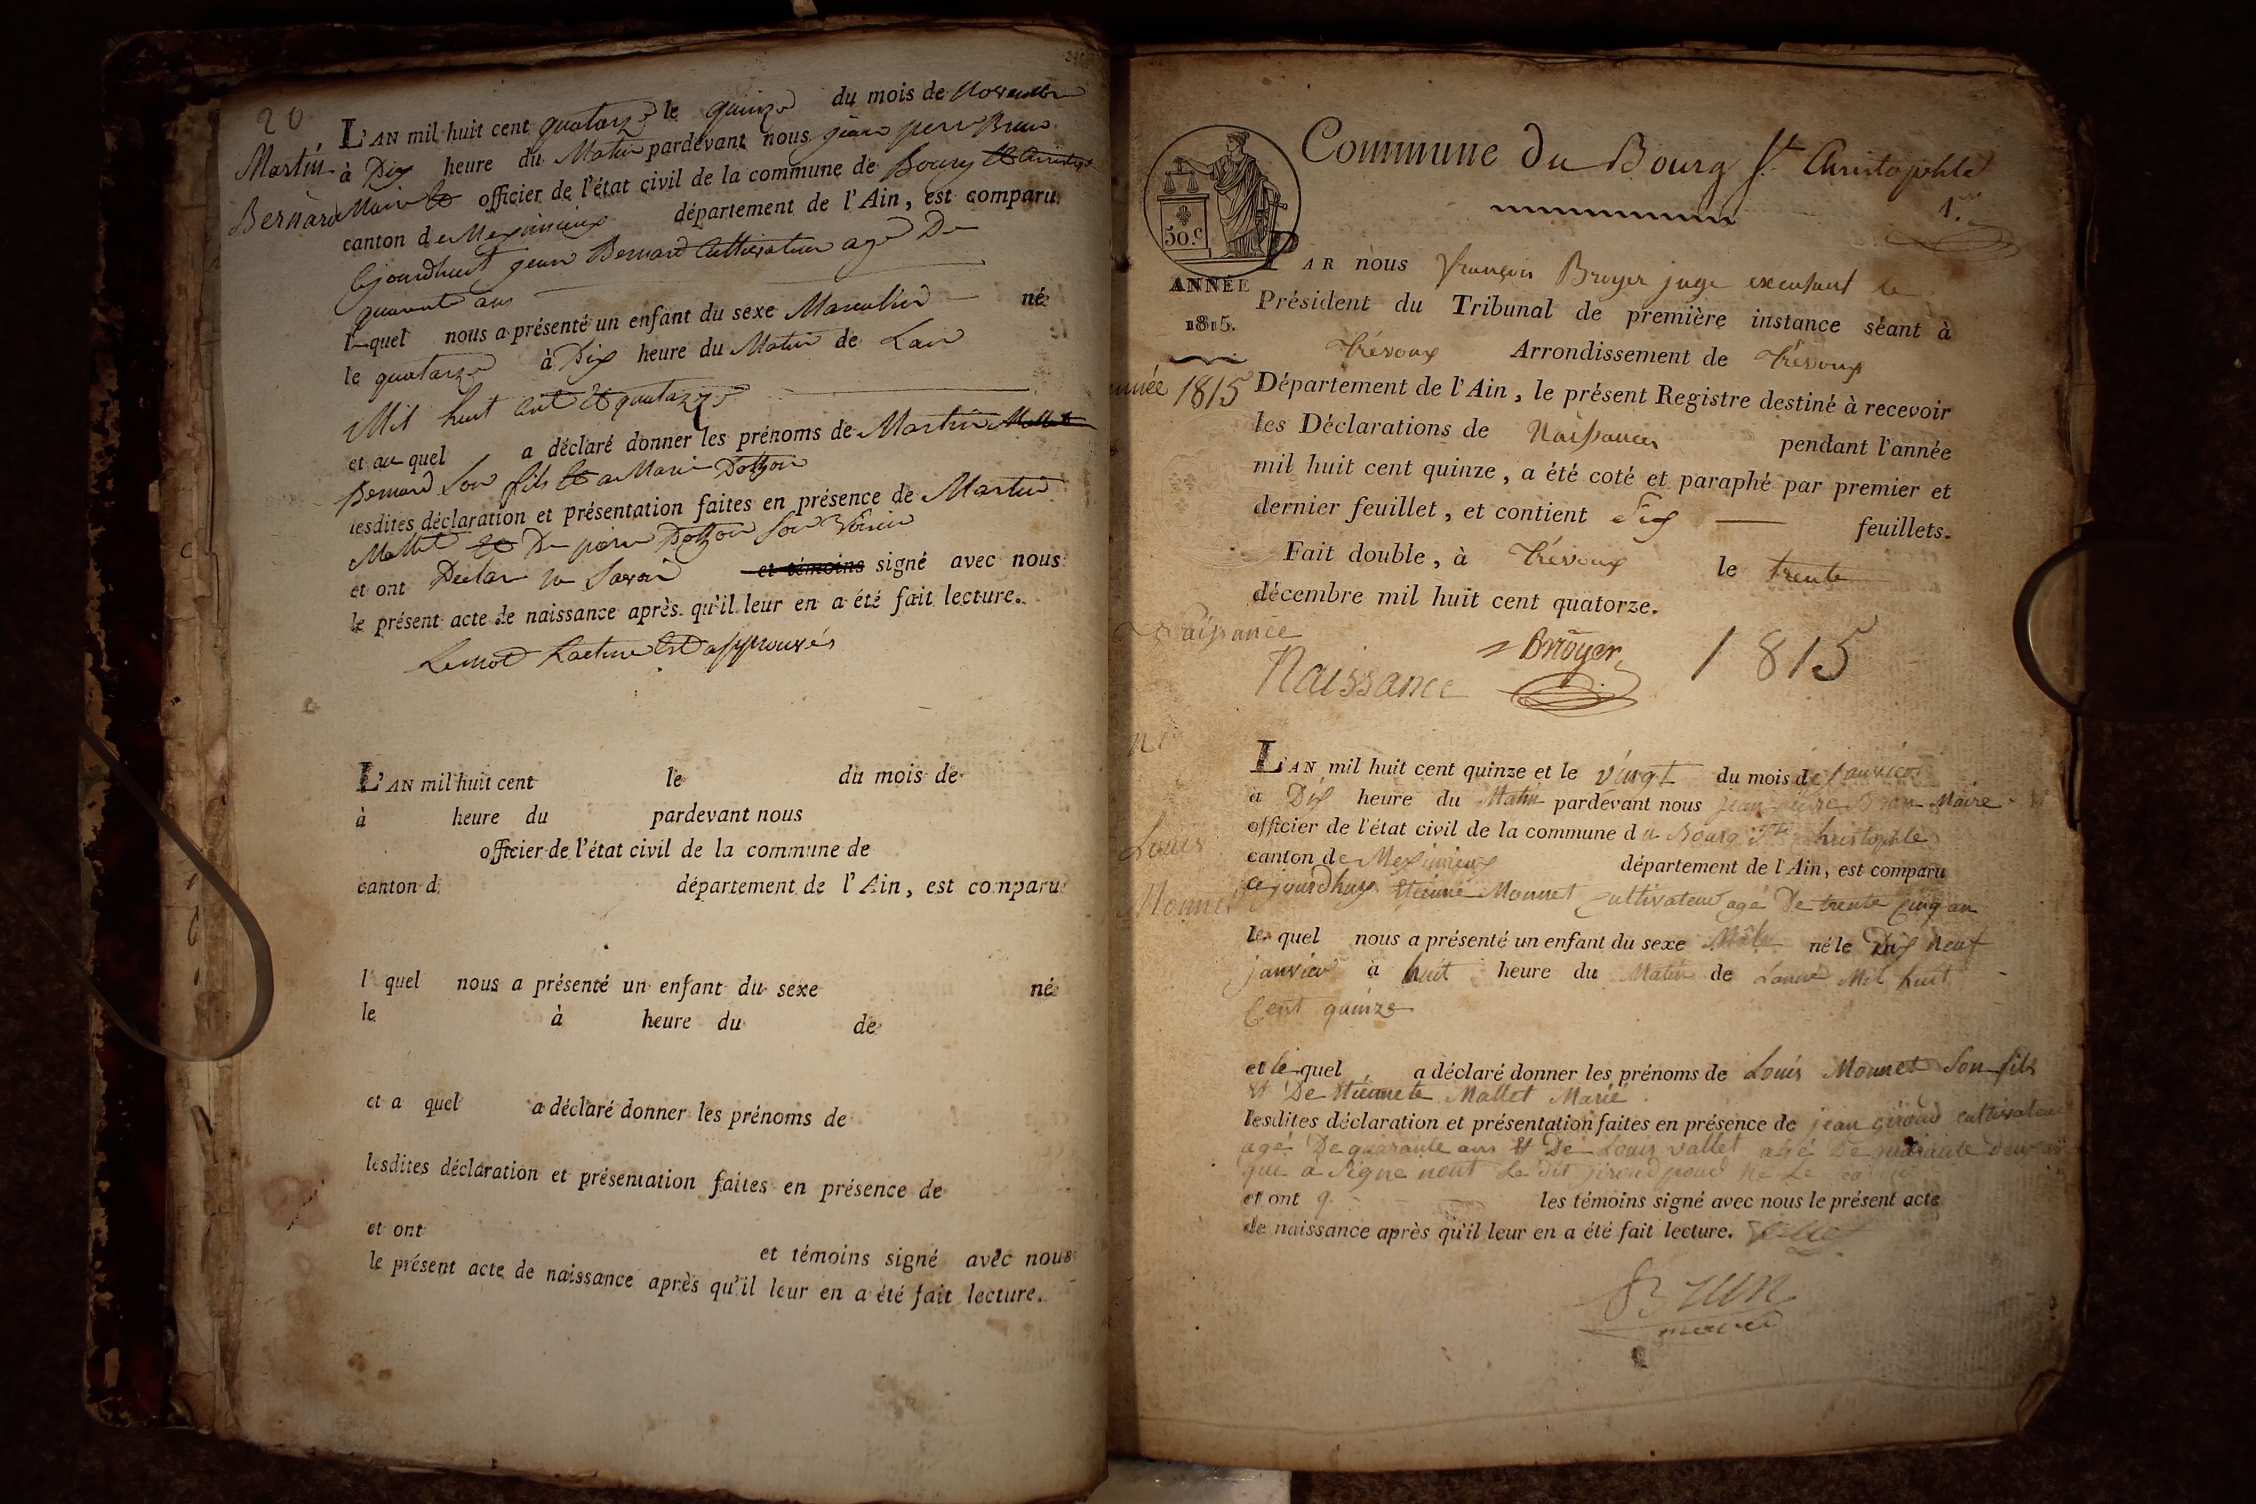 20
L'AN mil huit cent quatorze le quinze du mois de Novembre
Martin
à Dix heure du Matin pardevant nous jean pierre Brun
Bernard
Maire et officier de l'état civil de la commune de Bourg St Christophe
canton de Meximieux département de l'Ain, est comparu
Cejourdhuit jean Bernard Cultivateur agé De
quarante ans
lequel nous a présenté un enfant du sexe Masculin né
le quatorze à Dix heure du Matin de Lan
Mil huit cent et quatorze
et au quel a déclaré donner les prénoms de Martin Mallet
Bernard Son fils et a Marie
lesdites déclaration et présentation faites en présence de Martin
Mallet et De pierre Son Voisin
et ont Declaré ne Savoir et témoins signé avec nous
le présent acte de naissance après qu'il leur en a été fait lecture.
Lemot Lecture est approuvés
L'AN mil huit cent le du mois de
à heure du pardevant nous
officier de l'état civil de la commune de
canton d département de l'Ain, est comparu
l quel nous a présenté un enfant du sexe né
le à heure du de
et a quel a déclaré donner les prénoms de
lesdites déclaration et présentation faites en présence de
et ont et témoins signé avec nous
le présent acte de naissance après qu'il leur en a été fait lecture.
Commune du Bourg St Christophle
1.er
50.c
ANNÉE
1815.
PAR nous François Bruyer juge exerçant le
Président du Tribunal de première instance séant à
Trévoux Arrondissement de Trévoux
année 1815
Département de l'Ain, le présent Registre destiné à recevoir
les Déclarations de Naissances pendant l'année
mil huit cent quinze, a été coté et paraphé par premier et
dernier feuillet, et contient Six feuillets.
Fait double, à Trévoux le trente
décembre mil huit cent quatorze.
Naissance
Bruyer
1815
Naissance
L'AN mil huit cent quinze et le vingt du mois de janvier
a Dix heure du Matin pardevant nous jean pierre Brun Maire
officier de l'état civil de la commune du Bourg St Christophle
Louis
canton de Meximieux département de l'Ain, est comparu
Monnet
cejourdhuy Etienne Monnet cultivateur agé De trente Cinq an
le quel nous a présenté un enfant du sexe Mâle né le Dix Neuf
janvier à huit heure du Matin de Lanné Mil huit
Cent quinze
et le quel a déclaré donner les prénoms de Louis Monnet Son fils
et De Etiennete Mallet Marié
lesdites déclaration et présentation faites en présence de jean giroud cultivateur
agé De quarante ans et De Louis vallet agé De quarante deux
que a Signe nont Le dit giroud pour ne Le
et ont les témoins signé avec nous le présent acte
de naissance après qu'il leur en a été fait lecture.
Brun
maire